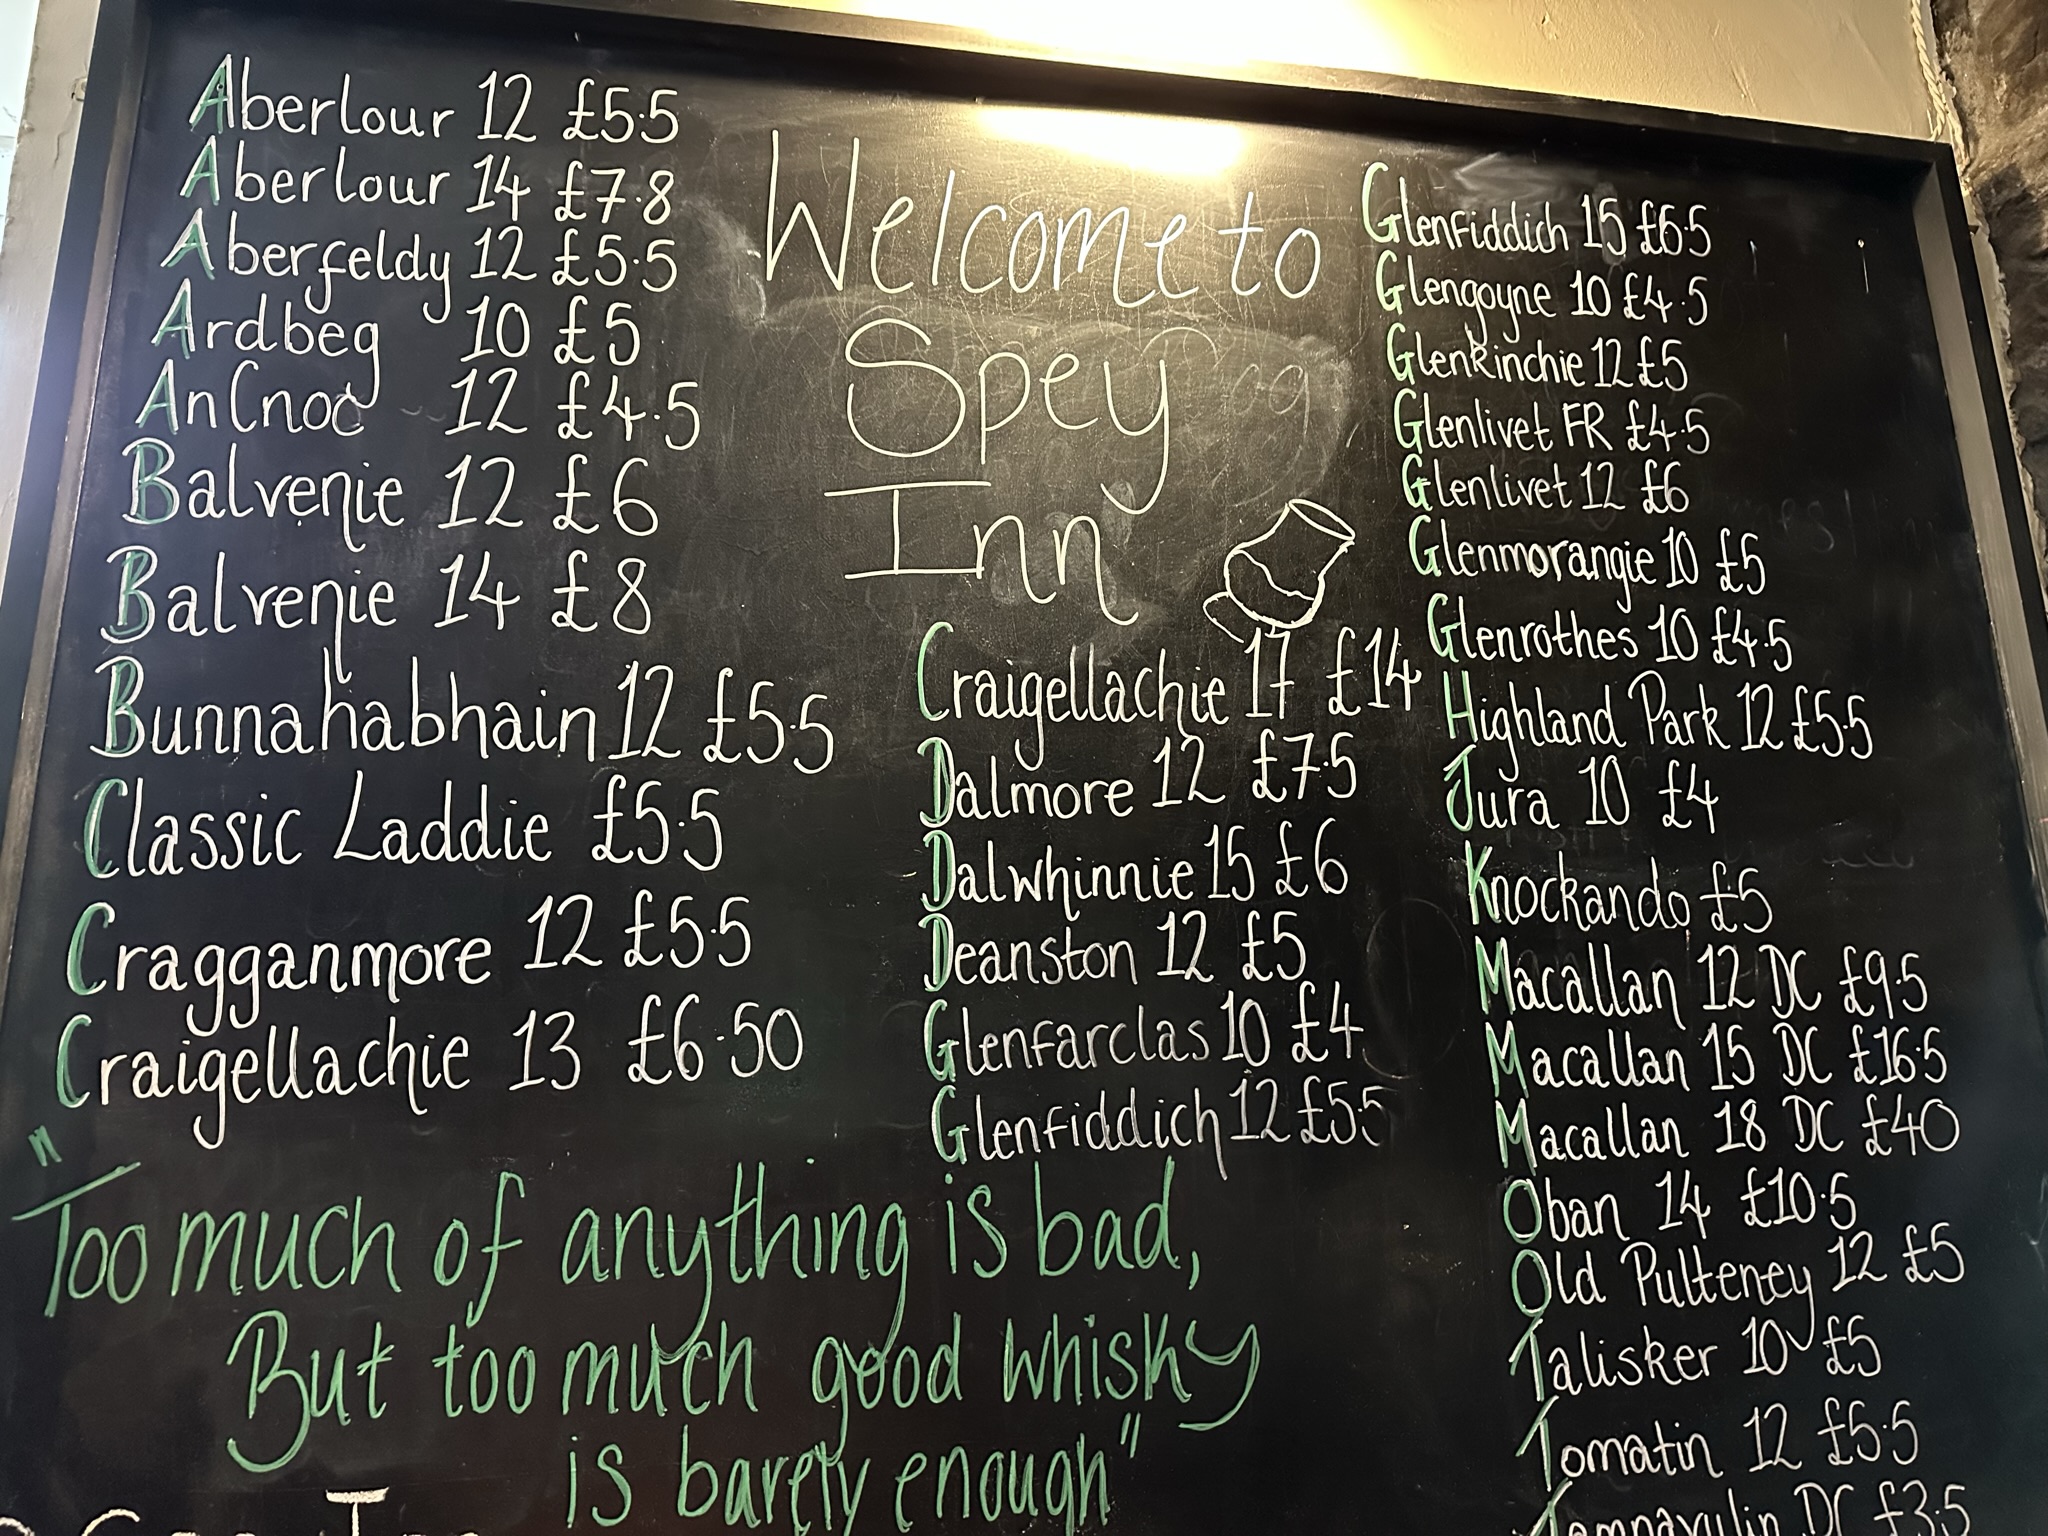 Aberlour 12 £5.5
Aberlour 14 £7.8
Aberfeldy 12 £5.5
Ardbeg 10 £5
AnCnoc 12 £4.5
Balvenie 12 £6
Balvenie 14 £8
Bunnahabhain 12 £5.5
Classic Laddie £5.5
Cragganmore 12 £5.5
Craigellachie 13 £6.50
Welcome to
Spey
Inn
Craigellachie 17 £14
Dalmore 12 £7.5
Dalwhinnie 15 £6
Deanston 12 £5
Glenfarclas 10 £4
Glenfiddich 12 £5.5
Glenfiddich 15 £6.5
Glengoyne 10 £4.5
Glenkinchie 12 £5
Glenlivet FR £4.5
Glenlivet 12 £6
Glenmorangie 10 £5
Glenrothes 10 £4.5
Highland Park 12 £5.5
Jura 10 £4
Knockando £5
Macallan 12 DC £9.5
Macallan 15 DC £16.5
Macallan 18 DC £40
Oban 14 £10.5
Old Pulteney 12 £5
Talisker 10 £5
Tomatin 12 £5.5
Tamnavulin DC £3.5
"Too much of anything is bad,
But too much good whisky
is barely enough"